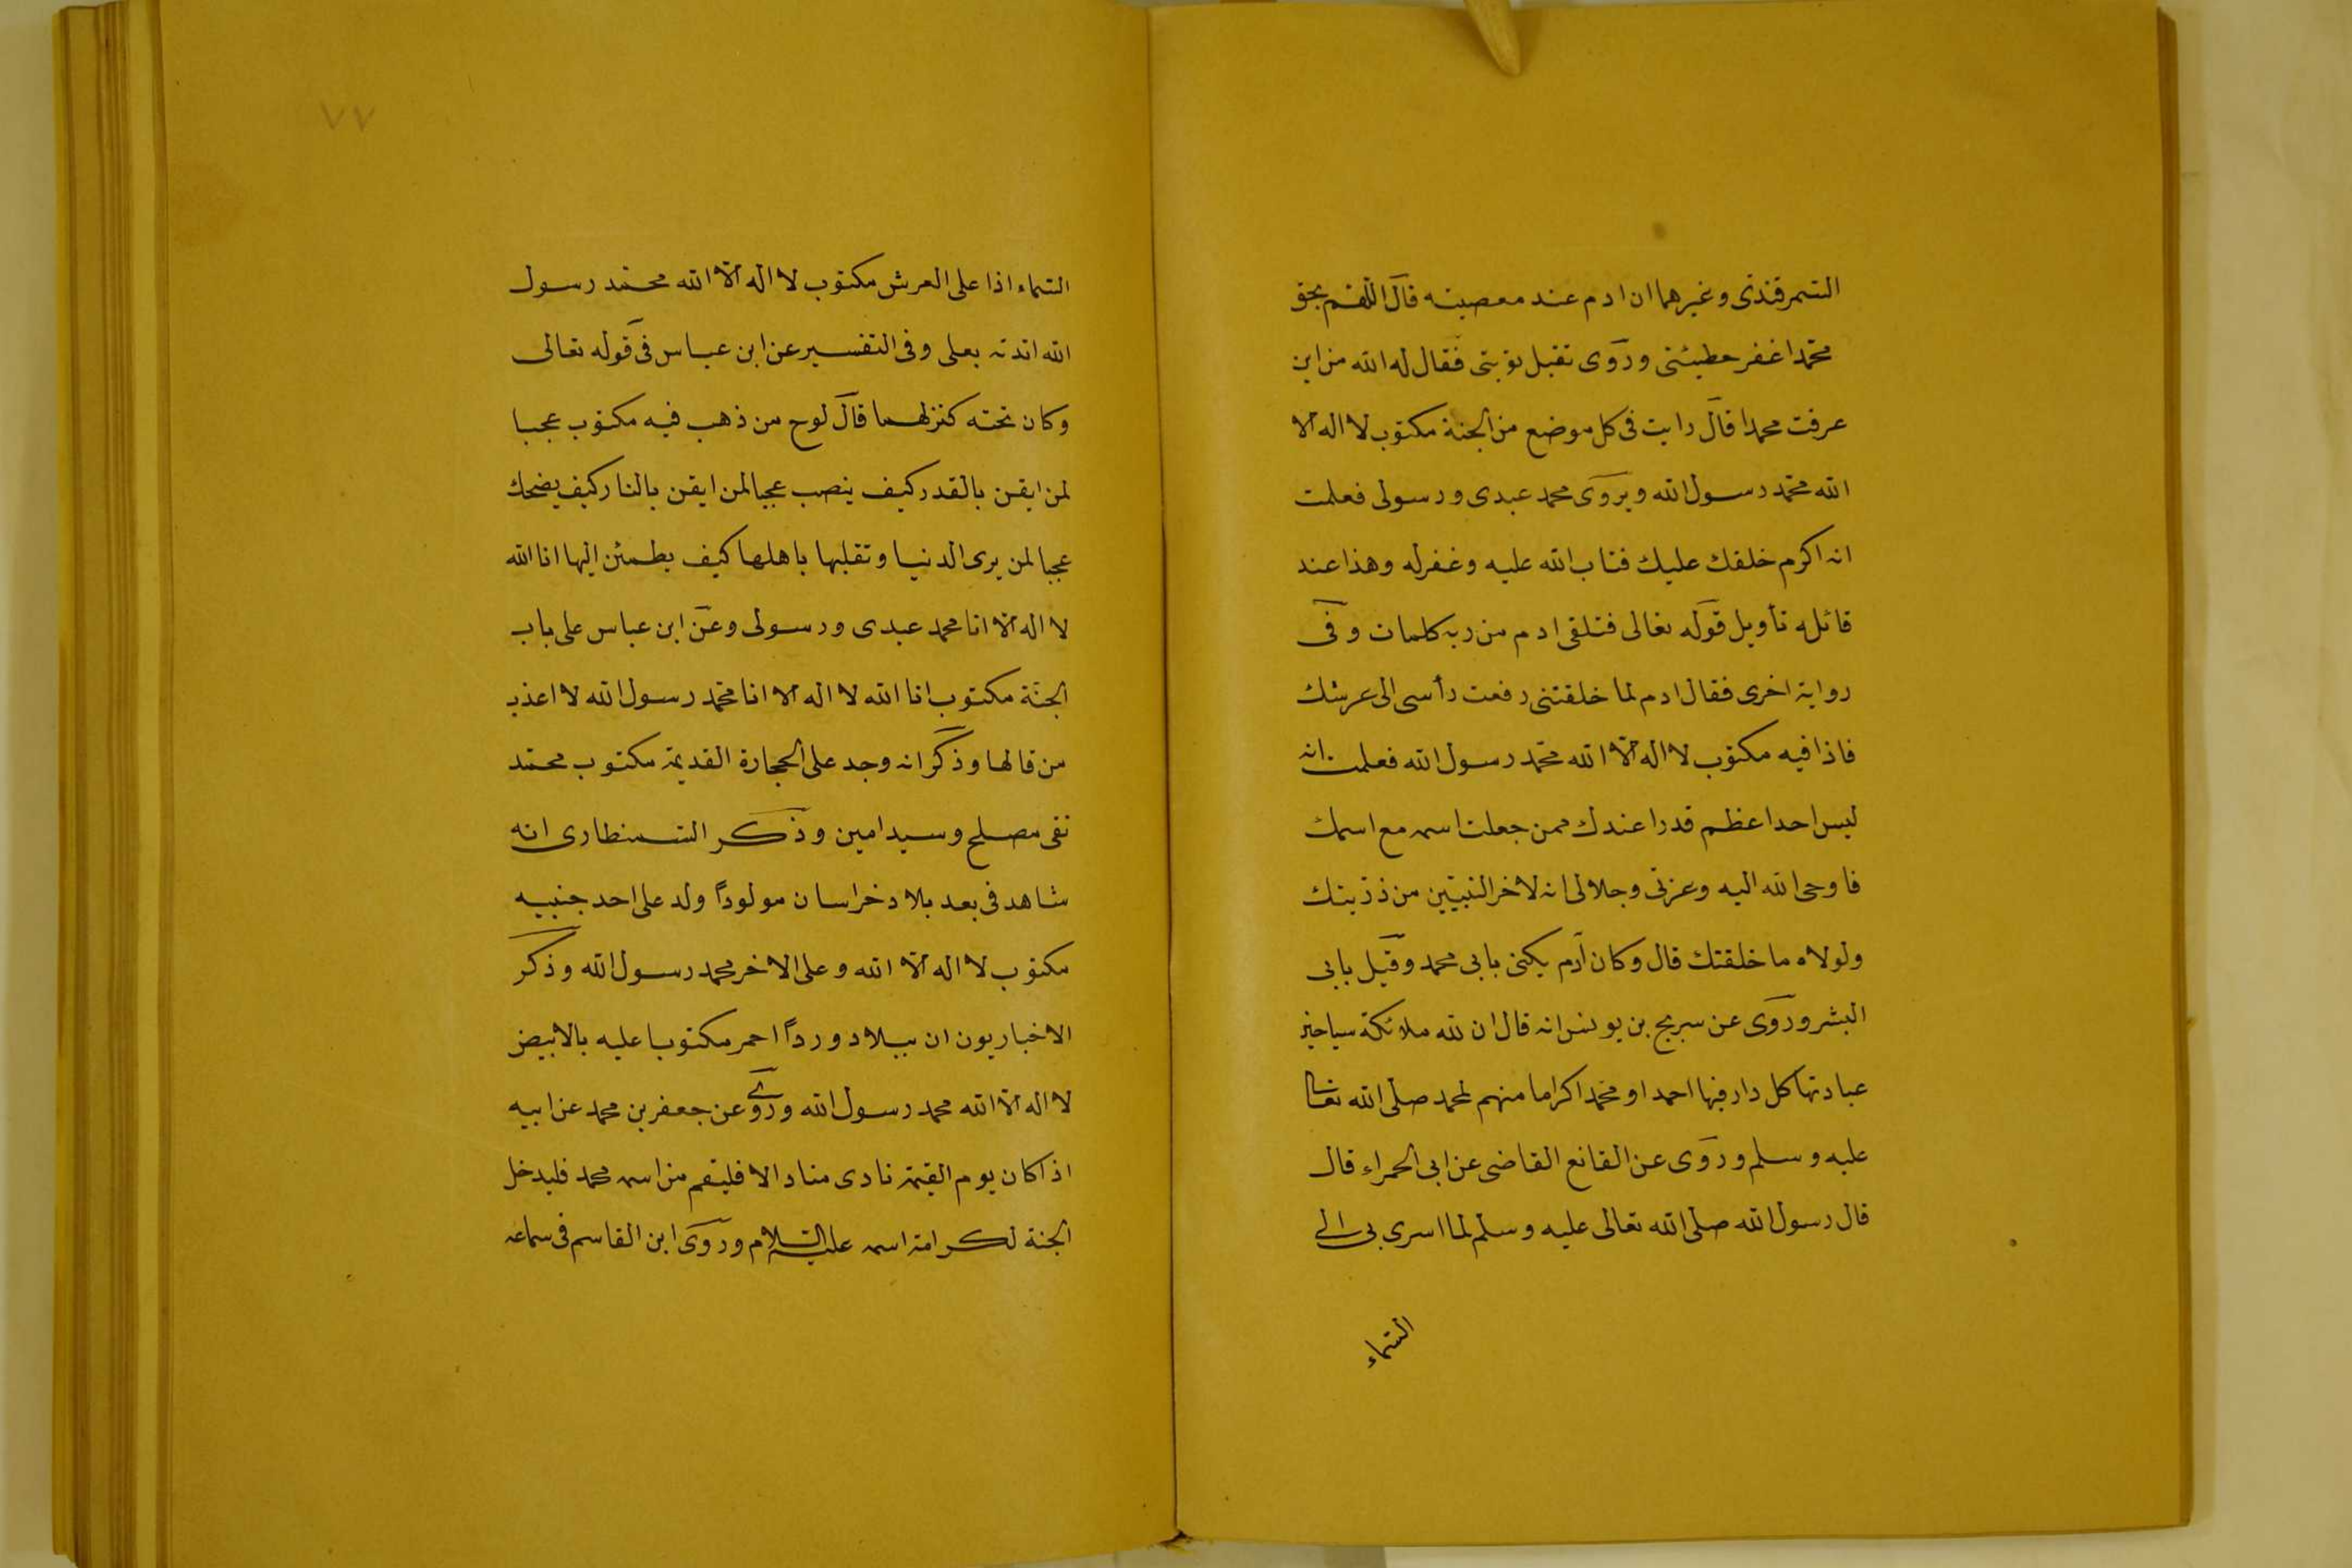 السمرقندى وغيرهما ان ادم عند معصيته قال اللهم بحق
محمد اغفر خطيئتى وروى تقبل توبتى فقال له الله من اين
عرفت محمدا قال رايت فى كل موضع من الجنة مكتوب لا اله الا
الله محمد رسول الله ويروى محمد عبدى ورسولى فعلمت
انه اكرم خلقك عليك فتاب الله عليه وغفر له وهذا عند
قائله تأويل قوله تعالى فتلقى ادم من ربه كلمات وفى
رواية اخرى فقال ادم لما خلقتنى رفعت رأسى الى عرشك
فاذا فيه مكتوب لا اله الا الله محمد رسول الله فعلمت انه
ليس احد اعظم قدرا عندك ممن جعلت اسمه مع اسمك
فاوحى الله اليه وعزتى وجلالى انه لاخر النبيين من ذريتك
ولولاه ما خلقتك قال وكان آدم يكنى بابى محمد وقيل بابى
البشر وروى عن سريج بن يونس انه قال ان لله ملائكة سياحين
عبادتها كل دار فيها احمد او محمد اكراما منهم لمحمد صلى الله تعالى
عليه وسلم وروى عن القانع القاضى عن ابى الحمراء قال
قال رسول الله صلى الله تعالى عليه وسلم لما اسرى بى الى
السماء
٧٧
السماء اذا على العرش مكتوب لا اله الا الله محمد رسول
الله ايدته بعلى وفى التفسير عن ابن عباس فى قوله تعالى
وكان تحته كنز لهما قال لوح من ذهب فيه مكتوب عجبا
لمن ايقن بالقدر كيف ينصب عجبا لمن ايقن بالنار كيف يضحك
عجبا لمن يرى الدنيا وتقلبها باهلها كيف يطمئن اليها انا الله
لا اله الا انا محمد عبدى ورسولى وعن ابن عباس على باب
الجنة مكتوب انا الله لا اله الا انا محمد رسول الله لا اعذب
من قالها وذكر انه وجد على الحجارة القديمة مكتوب محمد
تقى مصلح وسيد امين وذكر السمنطارى انه
شاهد فى بعد بلاد خراسان مولودا ولد على احد جنبيه
مكتوب لا اله الا الله وعلى الاخر محمد رسول الله وذكر
الاخباريون ان ببلاد وردا احمر مكتوبا عليه بالابيض
لا اله الا الله محمد رسول الله وروى عن جعفر بن محمد عن ابيه
اذا كان يوم القيمة نادى مناد الا فليقم من اسمه محمد فليدخل
الجنة لكرامة اسمه عليه السلام وروى ابن القاسم فى سماعه